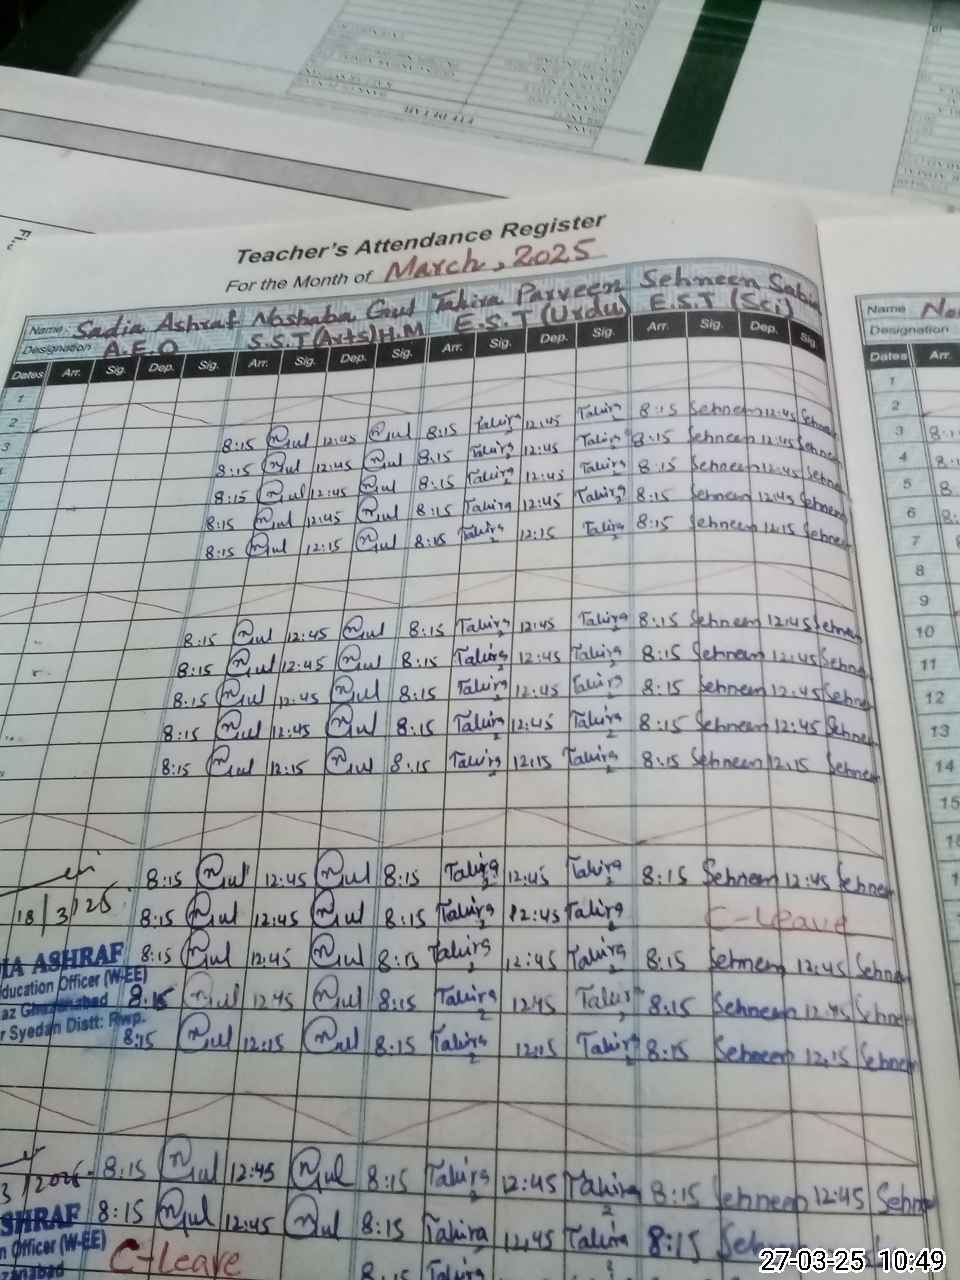 Teacher's Attendance Register
For the Month of March, 2025
Name: Sadia Ashraf Noshaba Gul Tahira Parveen Sehneen
Designation A.E.O S.S.T (Arts) H.M E.S.T (Urdu) E.S.T (Sci)
Dates Arr. Sig. Dep. Sig. Arr. Sig. Dep. Sig. Arr. Sig. Dep. Sig. Arr. Sig. Dep. Sig.
Name
Designation
Dates Arr.
1 1
2 2
3 8:15 Gul 12:45 Gul 8:15 Tahira 12:45 Tahira 8:15 Sehneen 12:45 Sehneen 3
8:15 Gul 12:45 Gul 8:15 Tahira 12:45 Tahira 8:15 Sehneen 12:45 Sehneen 4
8:15 Gul 12:45 Gul 8:15 Tahira 12:45 Tahira 8:15 Sehneen 12:45 Sehneen 5
8:15 Gul 12:45 Gul 8:15 Tahira 12:45 Tahira 8:15 Sehneen 12:45 Sehneen 6
8:15 Gul 12:15 Gul 8:15 Tahira 12:15 Tahira 8:15 Sehneen 12:15 Sehneen 7
8
9
8:15 Gul 12:45 Gul 8:15 Tahira 12:45 Tahira 8:15 Sehneen 12:45 Sehneen 10
8:15 Gul 12:45 Gul 8:15 Tahira 12:45 Tahira 8:15 Sehneen 12:45 Sehneen 11
8:15 Gul 12:45 Gul 8:15 Tahira 12:45 Tahira 8:15 Sehneen 12:45 Sehneen 12
8:15 Gul 12:45 Gul 8:15 Tahira 12:45 Tahira 8:15 Sehneen 12:45 Sehneen 13
8:15 Gul 12:15 Gul 8:15 Tahira 12:15 Tahira 8:15 Sehneen 12:15 Sehneen 14
15
8:15 Gul 12:45 Gul 8:15 Tahira 12:45 Tahira 8:15 Sehneen 12:45 Sehneen
18/3/25 8:15 Gul 12:45 Gul 8:15 Tahira 12:45 Tahira C-Leave
IA ASHRAF 8:15 Gul 12:45 Gul 8:15 Tahira 12:45 Tahira 8:15 Sehneen 12:45 Sehneen
ducation Officer (W-EE)
8:15 Gul 12:45 Gul 8:15 Tahira 12:45 Tahira 8:15 Sehneen 12:45 Sehneen
r Syedan Distt: Rwp.
8:15 Gul 12:15 Gul 8:15 Tahira 12:15 Tahira 8:15 Sehneen 12:15 Sehneen
8:15 Gul 12:45 Gul 8:15 Tahira 12:45 Tahira 8:15 Sehneen 12:45 Sehn
SHRAF 8:15 Gul 12:45 Gul 8:15 Tahira 12:45 Tahira 8:15
n Officer (W-EE)
C-Leave 8:15
27-03-25 10:49